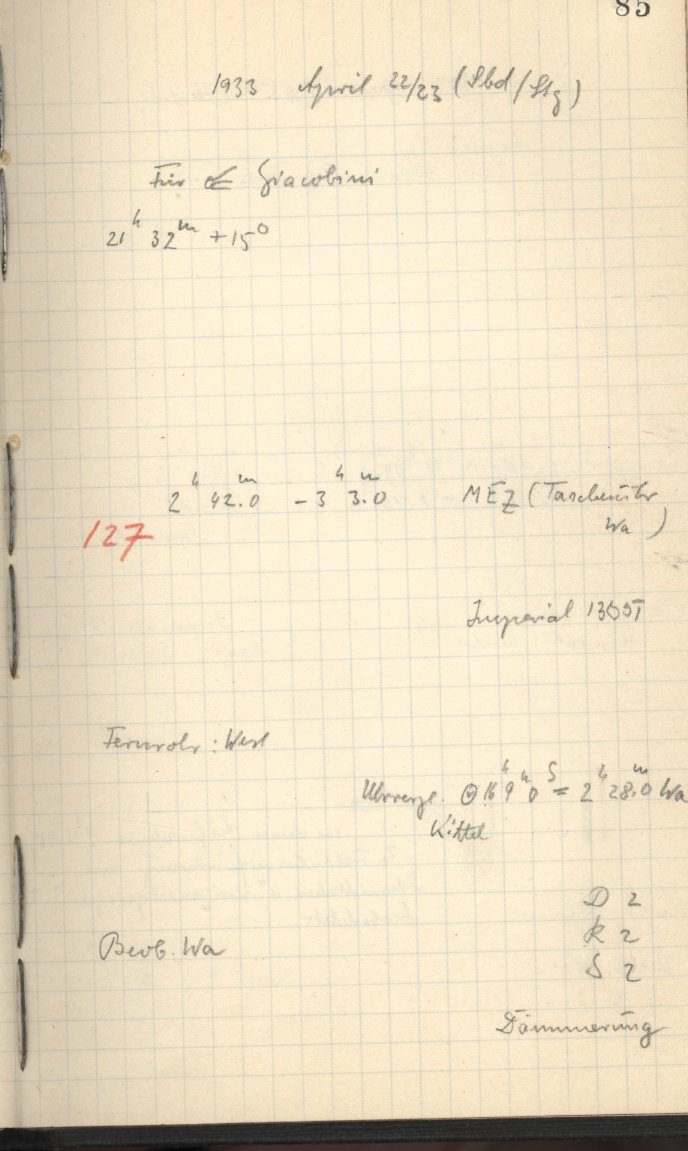 85
1933 April 22/23 (Sbd/Stg)
Für ☄ Giacobini
21ʰ 32ᵐ +15°
2ʰ 42.0ᵐ – 3ʰ 3.0ᵐ MEZ (Taschenuhr
Wa)
127
Imperial 1365I
Fernrohr: West
Uhrvergl. ⊙ 16ʰ 9ᵐ 0ˢ = 2ʰ 28.0ᵐ Wa
Kittel
D 2
R 2
Beob. Wa
S 2
Dämmerung